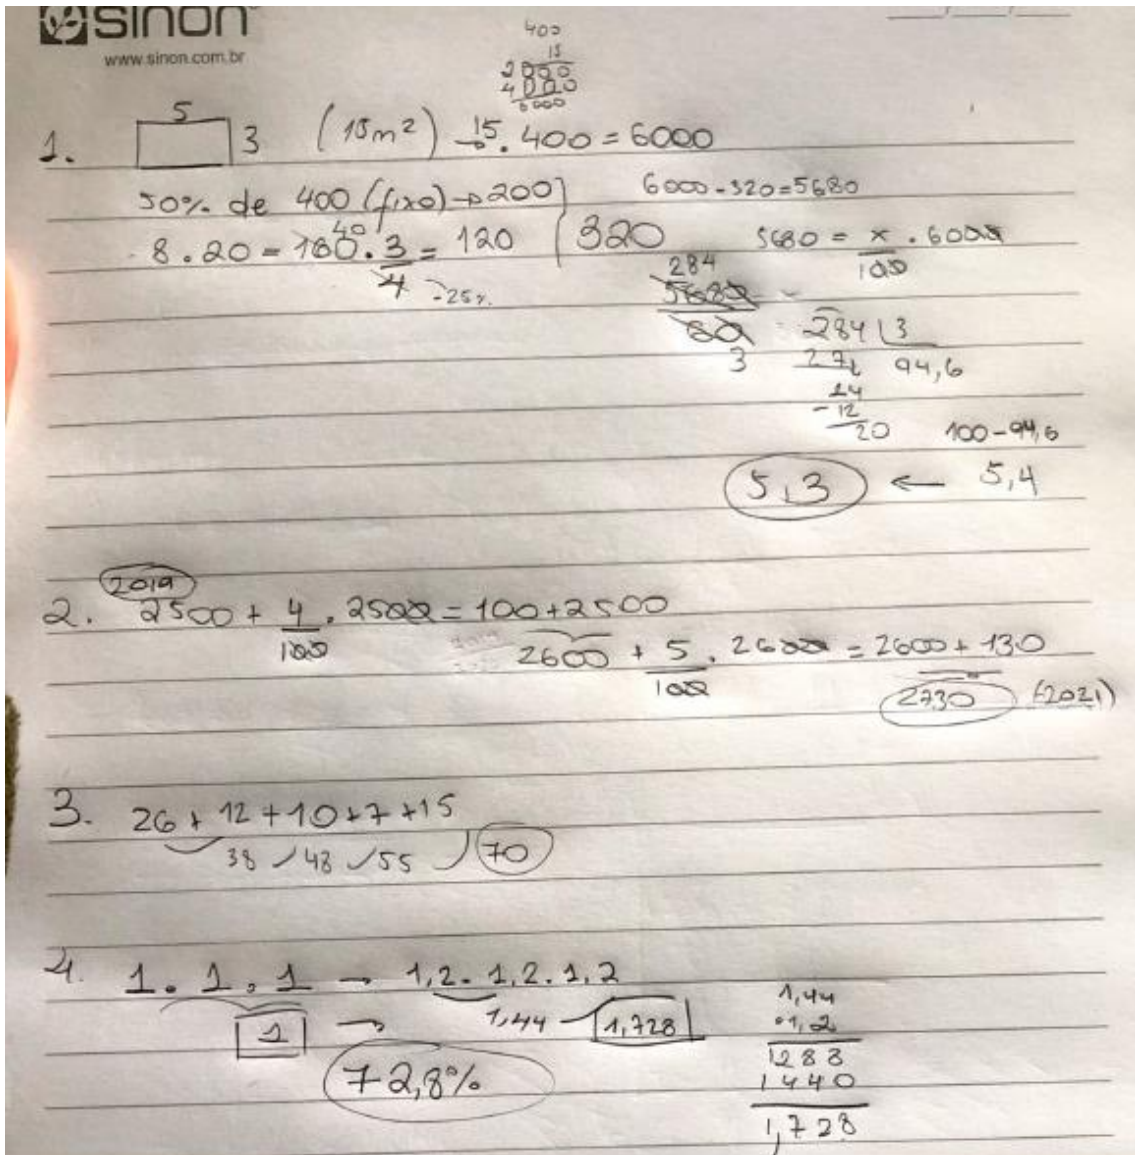 sinon
www.sinon.com.br
__/__/__
400
15
2000
4000
6000
1. 5 3 (15m²) → 15 . 400 = 6000
50% de 400 (fixo) → 200
6000 - 320 = 5680
8 . 20 = 160 . 3/4 = 120
40
-25%
320
5680 = x/100 . 6000
284
5680
60
3
284 | 3
27 94,6
24
-12
20
100 - 94,6
5,3 ← 5,4
2019
2. 2500 + 4/100 . 2500 = 100 + 2500
2600 + 5/100 . 2600 = 2600 + 130
2730 (2021)
3. 26 + 12 + 10 + 7 + 15
38 48 55 70
4. 1 . 1 . 1 → 1,2 . 1,2 . 1,2
1 → 1,44 1,728
72,8%
1,44
.1,2
1288
1440
1,728